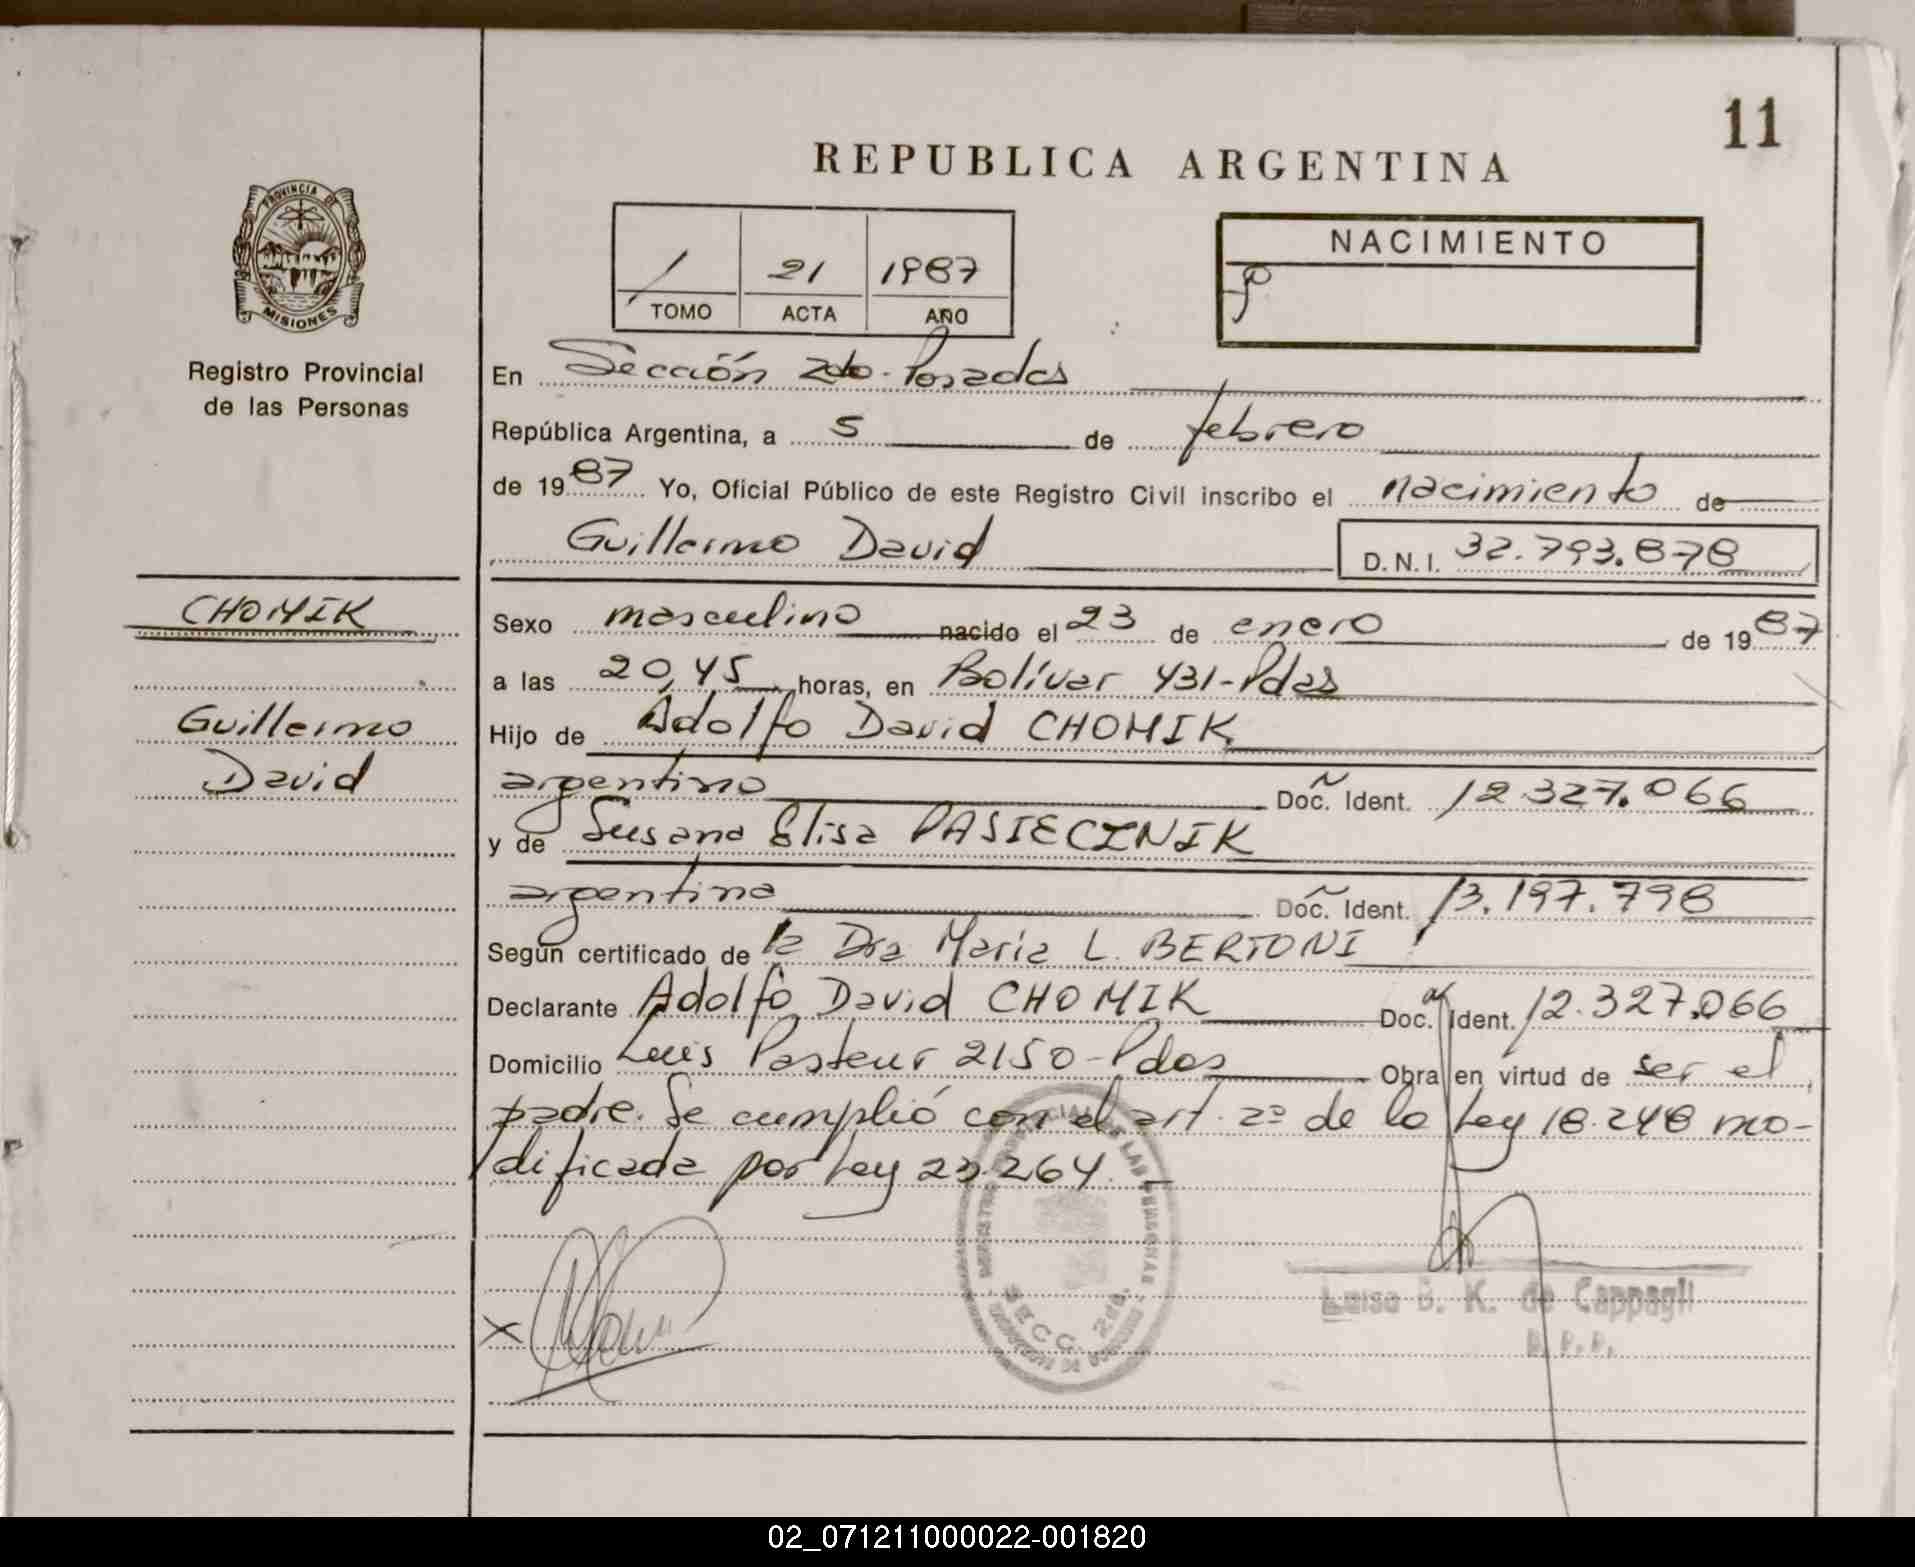 11
REPUBLICA ARGENTINA
PROVINCIA DE
MISIONES
Registro Provincial
de las Personas
1 21 1987
TOMO ACTA AÑO
NACIMIENTO
En Sección 2da. Posadas
República Argentina, a 5 de febrero
de 1987 Yo, Oficial Público de este Registro Civil inscribo el nacimiento de
Guillermo David D.N.I. 32.793.878
CHOMIK
Guillermo
David
Sexo masculino nacido el 23 de enero de 1987
a las 20,45 horas, en Bolívar 431-Pdas
Hijo de Adolfo David CHOMIK
argentino Doc. Ident. 12.327.066
y de Susana Elisa PASIECZNIK
argentina Doc. Ident. 13.197.798
Según certificado de la Dra Maria L. BERTONI
Declarante Adolfo David CHOMIK Doc. Ident. 12.327.066
Domicilio Luis Pasteur 2150-Pdas Obra en virtud de ser el
padre. Se cumplió con el art. 2º de la Ley 18.248 mo-
dificada por Ley 23.264.
SECC. 2da.
Luisa B. K. de Cappagli
02_071211000022-001820